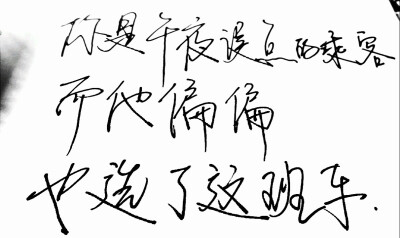 你是午夜误点的乘客
而他偏偏
也选了这班车.